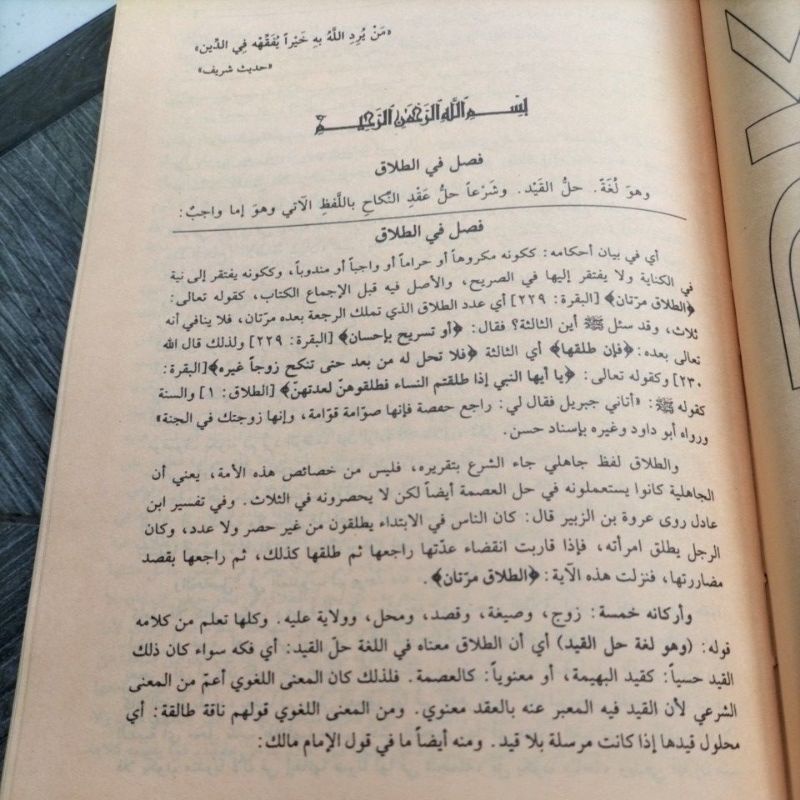 «مَنْ يُرِدِ اللَّهُ بِهِ خَيْراً يُفَقِّهْه فِي الدِّين»
«حديث شريف»
بِسْمِ اللَّهِ الرَّحْمَنِ الرَّحِيمِ
فصل في الطلاق
وهوَ لُغَةً. حلُّ القَيْد. وشَرْعاً حلُّ عَقْدِ النِّكاحِ باللَّفظِ الآتي وهوَ إما واجبٌ:
فصل في الطلاق
أي في بيان أحكامه: ككونه مكروهاً أو حراماً أو واجباً أو مندوباً، وككونه يفتقر إلى نية
في الكناية ولا يفتقر إليها في الصريح، والأصل فيه قبل الإجماع الكتاب، كقوله تعالى:
﴿الطلاق مرّتان﴾ [البقرة: ٢٢٩] أي عدد الطلاق الذي تملك الرجعة بعده مرّتان، فلا ينافي أنه
ثلاث، وقد سئل ﷺ أين الثالثة؟ فقال: ﴿أو تسريح بإحسان﴾ [البقرة: ٢٢٩] ولذلك قال الله
تعالى بعده: ﴿فإن طلقها﴾ أي الثالثة ﴿فلا تحل له من بعد حتى تنكح زوجاً غيره﴾ [البقرة:
٢٣٠] وكقوله تعالى: ﴿يا أيها النبي إذا طلقتم النساء فطلقوهنّ لعدتهنّ﴾ [الطلاق: ١] والسنة
كقوله ﷺ: «أتاني جبريل فقال لي: راجع حفصة فإنها صوّامة قوّامة، وإنها زوجتك في الجنة»
ورواه أبو داود وغيره بإسناد حسن.
والطلاق لفظ جاهلي جاء الشرع بتقريره، فليس من خصائص هذه الأمة، يعني أن
الجاهلية كانوا يستعملونه في حل العصمة أيضاً لكن لا يحصرونه في الثلاث. وفي تفسير ابن
عادل روى عروة بن الزبير قال: كان الناس في الابتداء يطلقون من غير حصر ولا عدد، وكان
الرجل يطلق امرأته، فإذا قاربت انقضاء عدّتها راجعها ثم طلقها كذلك، ثم راجعها بقصد
مضاررتها، فنزلت هذه الآية: ﴿الطلاق مرّتان﴾.
وأركانه خمسة: زوج، وصيغة، وقصد، ومحل، وولاية عليه. وكلها تعلم من كلامه
قوله: (وهو لغة حل القيد) أي أن الطلاق معناه في اللغة حلّ القيد: أي فكه سواء كان ذلك
القيد حسياً: كقيد البهيمة، أو معنوياً: كالعصمة. فلذلك كان المعنى اللغوي أعمّ من المعنى
الشرعي لأن القيد فيه المعبر عنه بالعقد معنوي. ومن المعنى اللغوي قولهم ناقة طالقة: أي
محلول قيدها إذا كانت مرسلة بلا قيد. ومنه أيضاً ما في قول الإمام مالك: